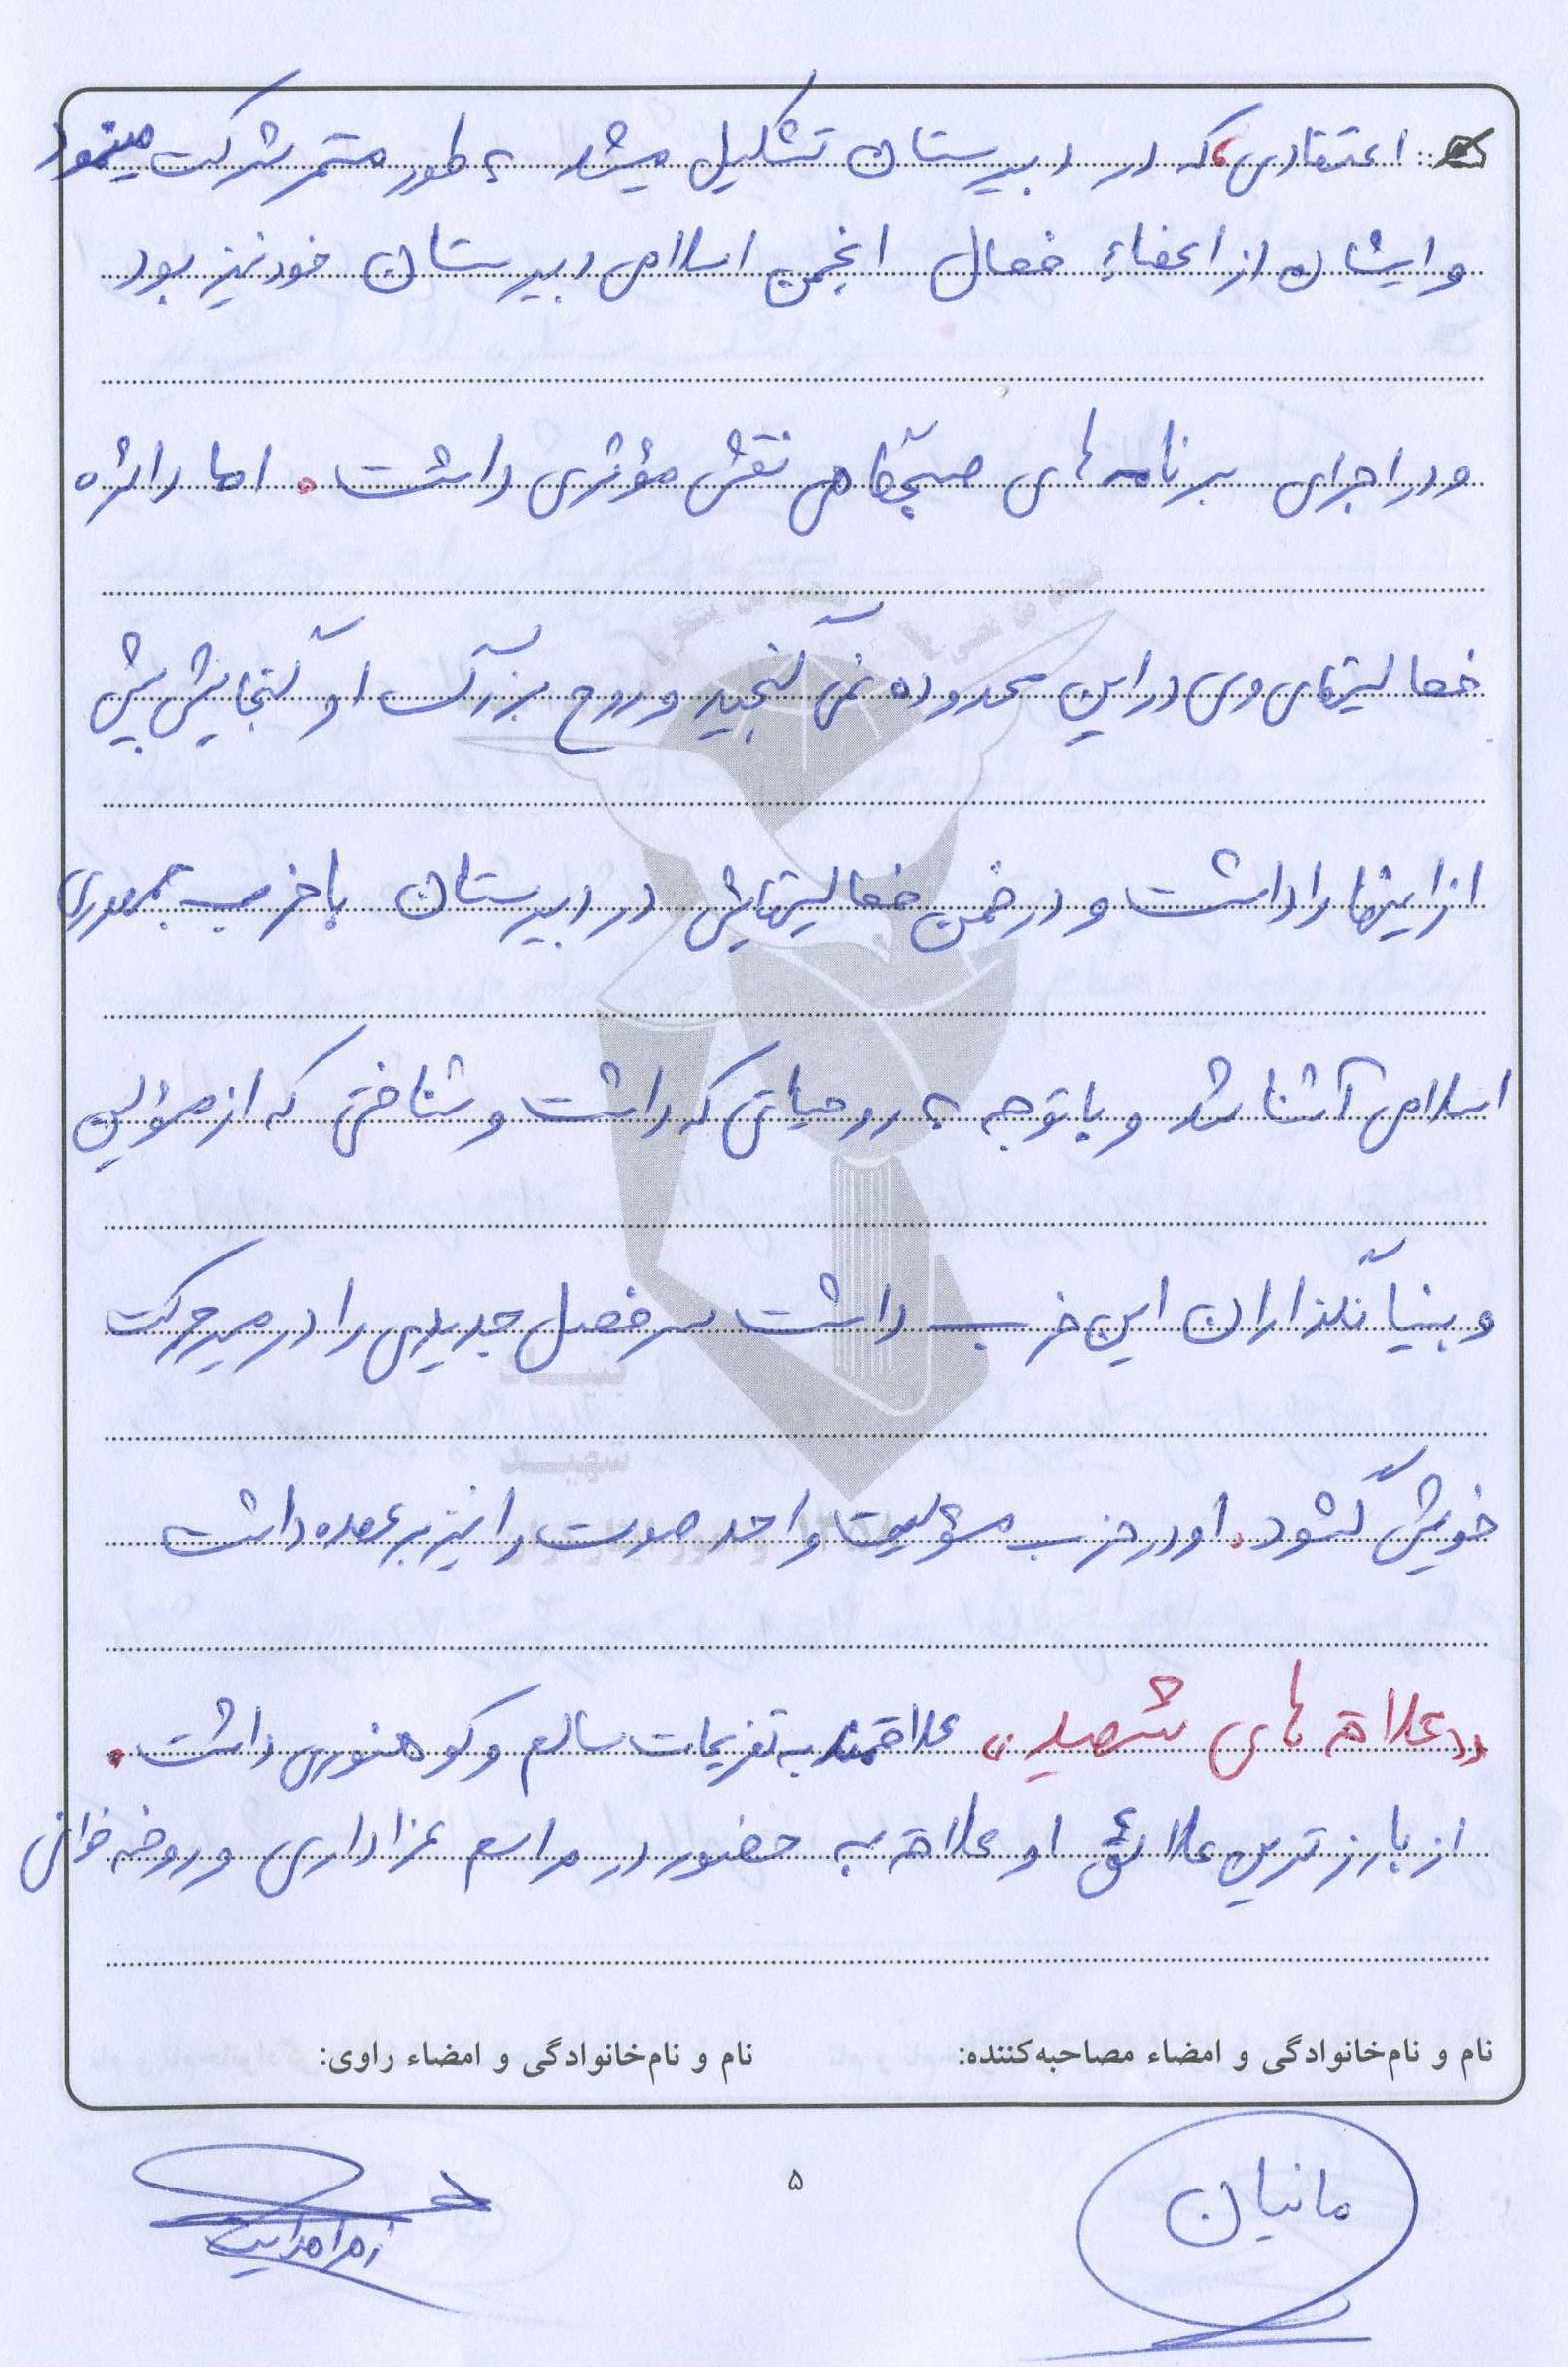 اعتقادی، که در دبیرستان تشکیل میشد به طور مستمر شرکت مینمود
و ایشان از اعضاء فعال انجمن اسلامی دبیرستان خود نیز بود
و در اجرای برنامه های صبحگاهی نقش مؤثری داشت. اما دائره
فعالیتهای وی در این محدوده نمی گنجید و روح بزرگ او گنجایش بیش
از اینها را داشت و در ضمن فعالیتهایش در دبیرستان با حزب جمهوری
اسلامی آشنا شد و با توجه به روحیاتی که داشت و شناختی که از مسؤلین
و بنیانگذاران این حزب داشت سرفصل جدیدی را در مسیر حرکت
خویش گشود. او در حزب مسؤلیت واحد صوت را نیز بر عهده داشت
«علاقه های شهید» علاقمند به تفریحات سالم و کوهنوردی داشت.
از بارزترین علائق او علاقه به حضور در مراسم عزاداری و روضه خوانی
نام و نام‌خانوادگی و امضاء مصاحبه‌کننده: نام و نام‌خانوادگی و امضاء راوی:
مانیان
۵